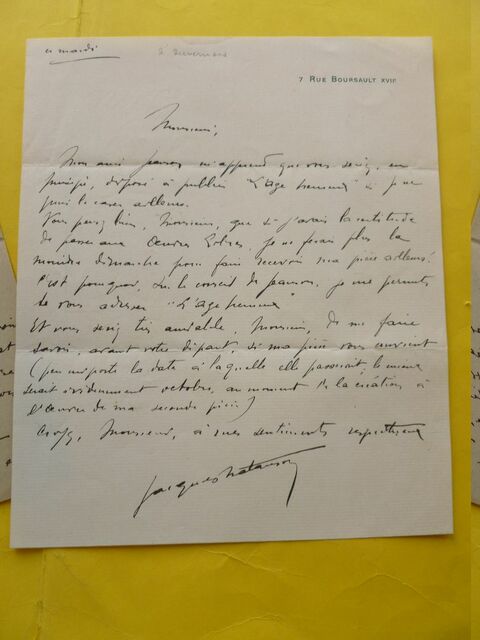 ce mardi
7 RUE BOURSAULT XVIIe
Monsieur,
Mon ami m'apprend que vous seriez, en
principe, disposé à publier "L'Age heureux" si je ne
le case ailleurs.
Vous pensez bien, Monsieur, que si j'avais la certitude
de passer aux Oeuvres Libres, je ne ferais plus la
moindre démarche pour faire recevoir ma pièce ailleurs.
C'est pourquoi, sur le conseil de je me permets
de vous adresser "L'Age heureux"
Et vous seriez très aimable, Monsieur, de me faire
savoir, avant votre départ, si ma pièce vous convient
(peu importe la date à laquelle elle passerait, le mieux
serait évidemment octobre, au moment de la création à
l'Oeuvre de ma seconde pièce)
Croyez, Monsieur, à mes sentiments respectueux
Jacques Natanson